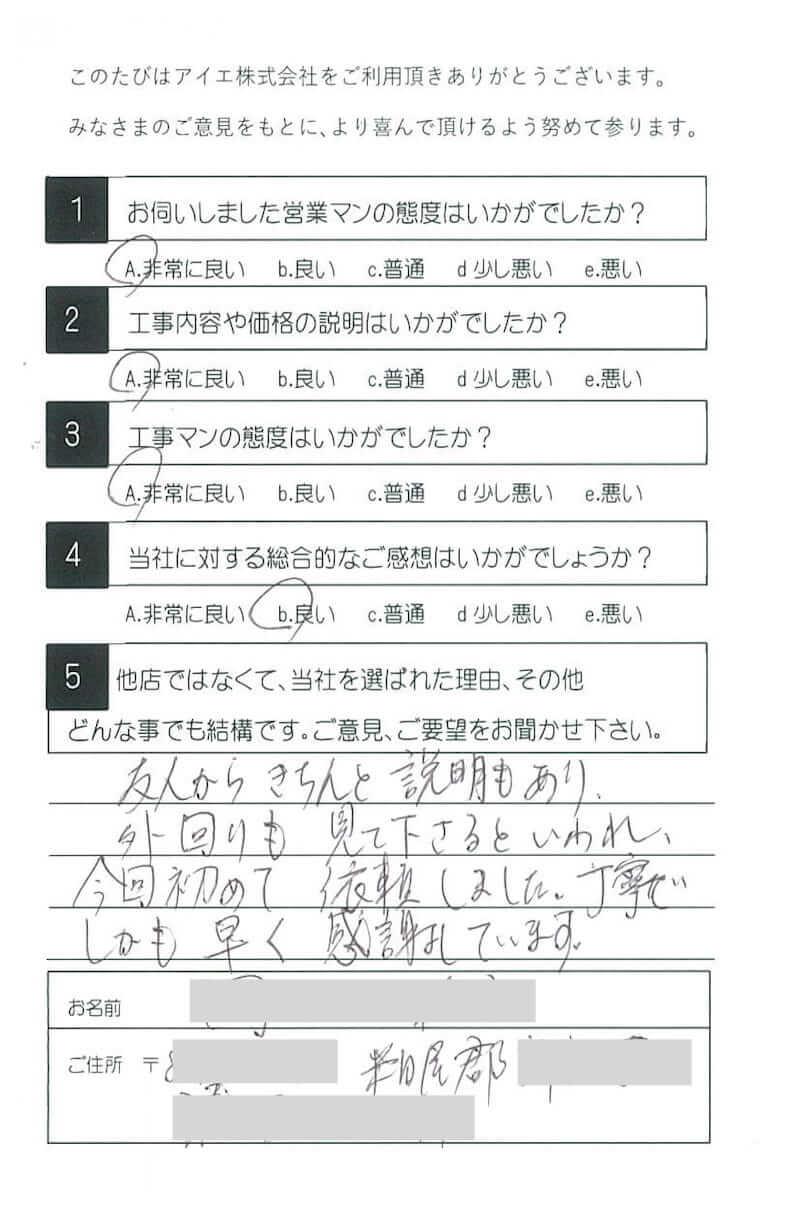 このたびはアイエ株式会社をご利用頂きありがとうございます。
みなさまのご意見をもとに、より喜んで頂けるよう努めて参ります。
1 お伺いしました営業マンの態度はいかがでしたか？
A.非常に良い b.良い c.普通 d 少し悪い e.悪い
2 工事内容や価格の説明はいかがでしたか？
A.非常に良い b.良い c.普通 d 少し悪い e.悪い
3 工事マンの態度はいかがでしたか？
A.非常に良い b.良い c.普通 d 少し悪い e.悪い
4 当社に対する総合的なご感想はいかがでしょうか？
A.非常に良い b.良い c.普通 d 少し悪い e.悪い
5 他店ではなくて、当社を選ばれた理由、その他
どんな事でも結構です。ご意見、ご要望をお聞かせ下さい。
友人からきちんと説明もあり、
外回りも見て下さるといわれ、
今回初めて依頼しました。丁寧でい
しかも早く感謝しています。
お名前
ご住所 〒 粕屋郡